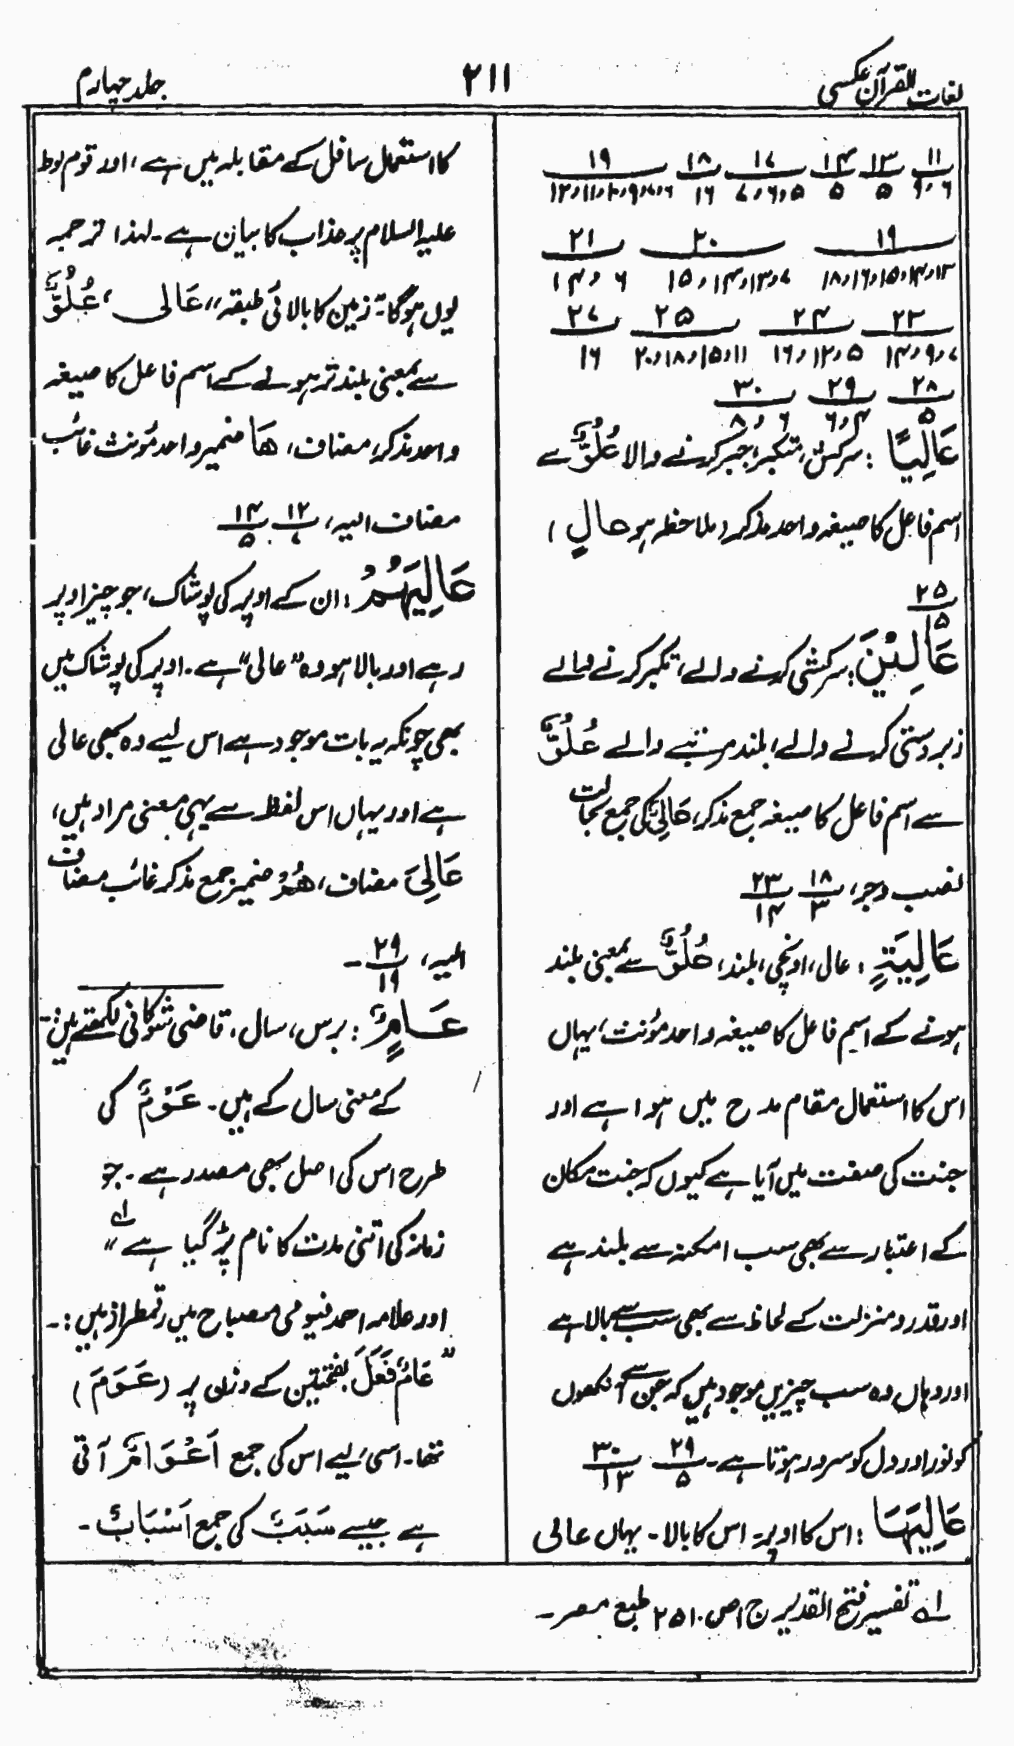 لغات القرآن عکسی
۲۱۱
جلد چہارم
۱۱ ۱۳ ۱۴ ۱۷ ۱۸ ۱۹
۶،۹ ۵ ۵ ۵،۶،۷ ۱۶ ۶،۷،۹،۱۰،۱۱،۱۲
۱۹ ۲۰ ۲۱
۱۳،۱۴،۱۵،۱۶،۱۸ ۷،۱۳،۱۴،۱۵ ۶، ۱۴
۲۳ ۲۴ ۲۵ ۲۷
۷،۹،۱۴ ۵،۱۲،۱۶ ۱۱،۱۵،۱۸،۲۰ ۱۶
۲۸ ۲۹ ۳۰
۵ ۴،۶ ۶، ۸
عَالِیًا : سرکش، متکبر، جبر کرنے والا عُلُوٌّ سے
اسم فاعل کا صیغہ واحد مذکر (ملاحظہ ہو عالٍ)
۲۵
۱۵
عَالِیْنَ : سرکشی کرنے والے، تکبر کرنے والے
زبردستی کرنے والے، بلند مرتبے والے عُلُوٌّ
سے اسم فاعل کا صیغہ جمع مذکر، عَالِیٌ کی جمع بحالت
نصب وجر، ۱۸/۳ ۲۳/۱۴
عَالِیَةٍ : عالی، اونچی، بلند، عُلُوٌّ سے بمعنی بلند
ہونے کے اسم فاعل کا صیغہ واحد مؤنث، یہاں
اس کا استعمال مقام مدح میں ہوا ہے اور
جنت کی صفت میں آیا ہے کیوں کہ جنت مکان
کے اعتبار سے بھی سب امکنہ سے بلند ہے
اور قدر و منزلت کے لحاظ سے بھی سب سے بالا ہے
اور وہاں وہ سب چیزیں موجود ہیں کہ جن سے آنکھوں
کو نور اور دل کو سرور ہوتا ہے۔ ۲۹/۵ ۳۰/۱۳
عَالِیَہَا : اس کا اوپر۔ اس کا بالا۔ یہاں عالی
کا استعمال سافل کے مقابلہ میں ہے، اور قوم لوط
علیہ السلام پر عذاب کا بیان ہے۔ لہٰذا ترجمہ
یوں ہوگا۔ زمین کا بالائی طبقہ،، عَالی، عُلُوٌّ
سے بمعنی بلند تر ہونے کے اسم فاعل کا صیغہ
واحد مذکر، مضاف، ھَا ضمیر واحد مؤنث غائب
مضاف الیہ، ۱۲/۷ ۱۴/۵
عَالِیَہُمْ : ان کے اوپر کی پوشاک، جو چیز اوپر
رہے اور بالا ہو وہ "عالی" ہے۔ اوپر کی پوشاک میں
بھی چونکہ یہ بات موجود ہے اس لیے وہ بھی عالی
ہے اور یہاں اس لفظ سے یہی معنی مراد ہیں،
عَالِیَ مضاف، ھُمْ ضمیر جمع مذکر غائب مضاف
الیہ، ۲۹/۱۹ ۔
عَامٍ : برس، سال، قاضی شوکانی لکھتے ہیں :۔
کے معنی سال کے ہیں۔ عَوْمٌ کی
طرح اس کی اصل بھی مصدر ہے۔ جو
زمانہ کی اتنی مدت کا نام پڑ گیا ہے" ۱ھ
اور علامہ احمد فیومی مصباح میں رقمطراز ہیں :۔
"عَامٌ فَعَلَ بفتحتین کے وزن پر (عَوَمَ)
تھا۔ اسی لیے اس کی جمع اَعْوَامٌ آتی
ہے جیسے سَبَبٌ کی جمع اَسْبَابٌ ۔
۱ھ تفسیر فتح القدیر ج ۱ ص ۲۵۱ طبع مصر ۔